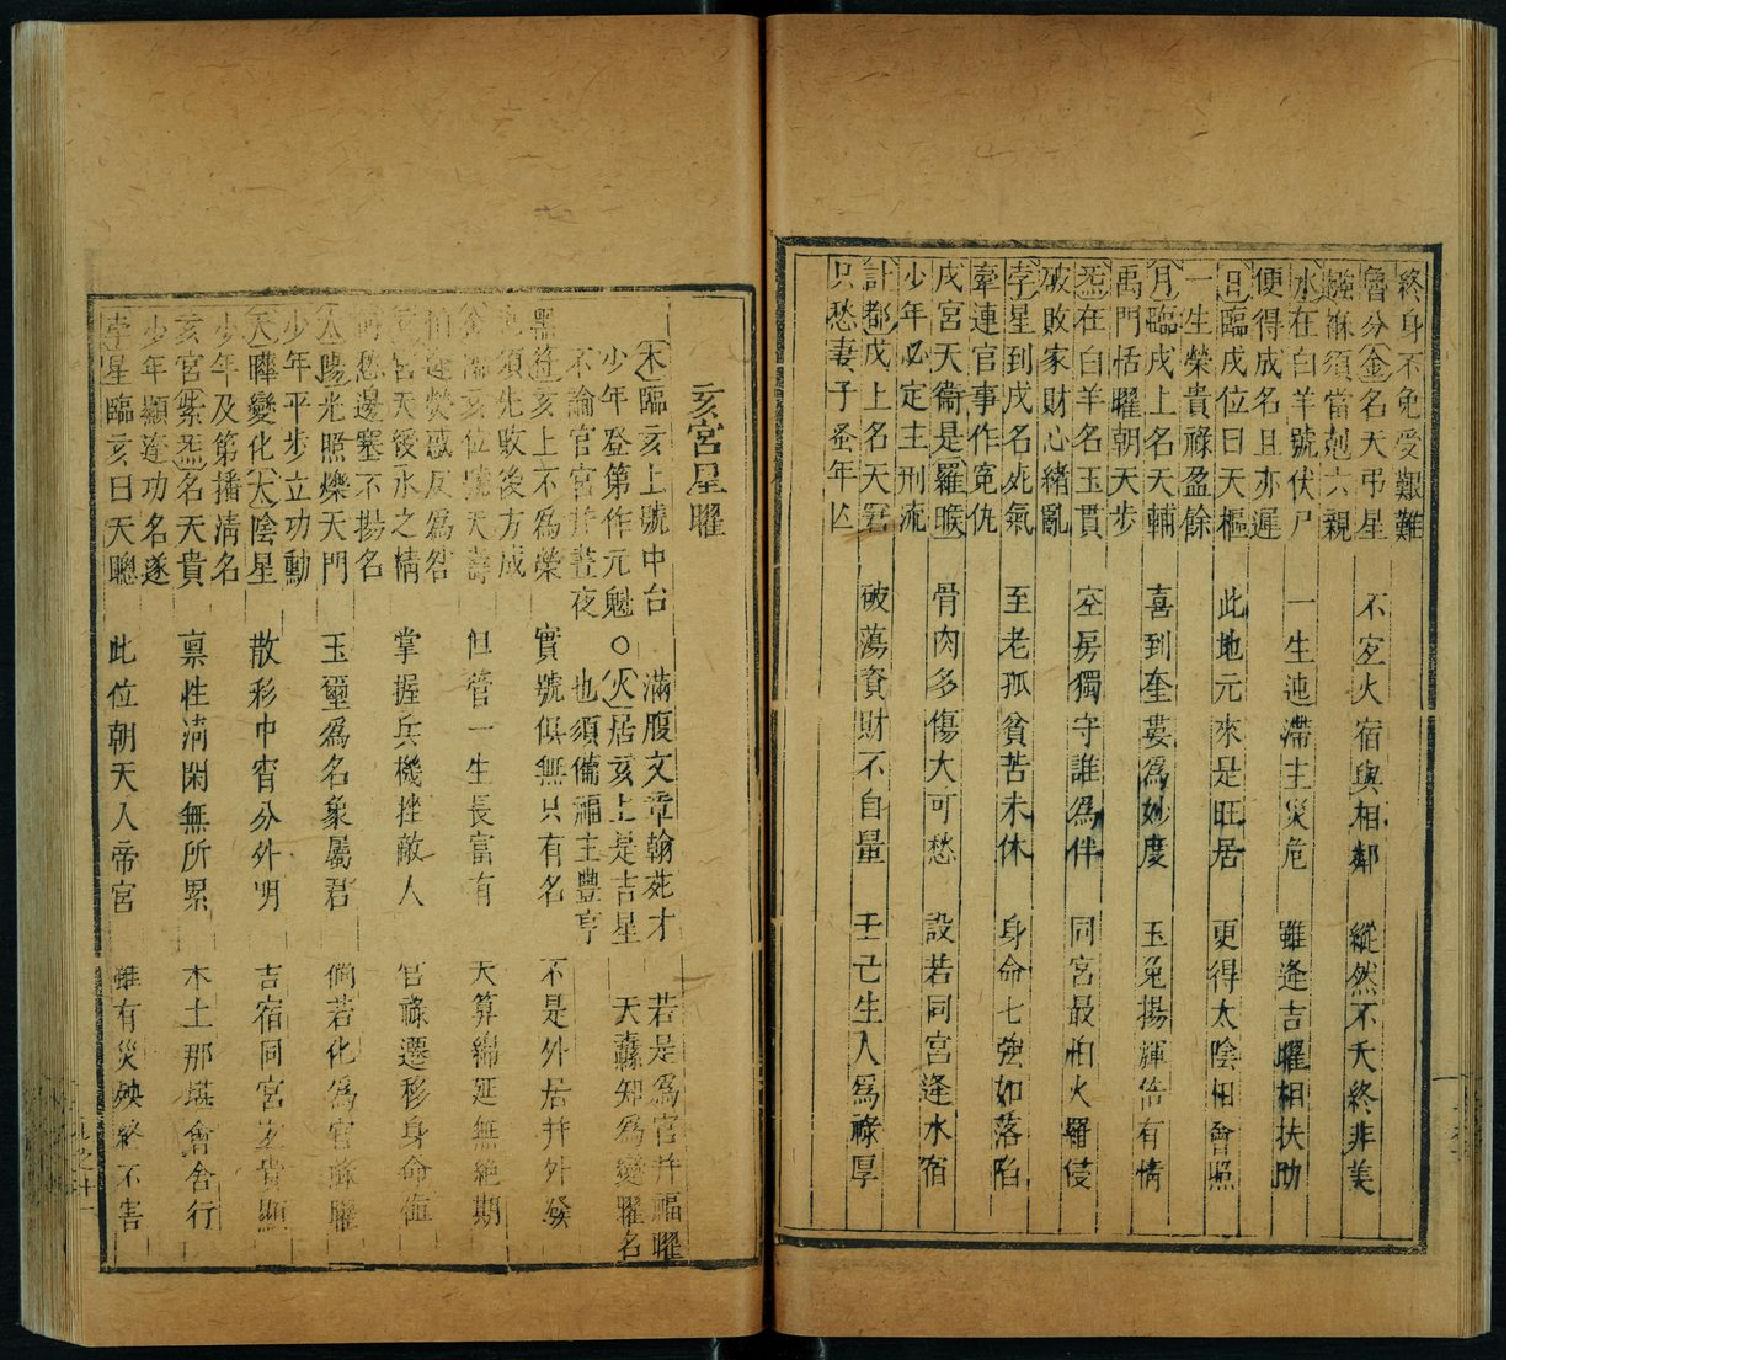 終身不免受艱難
魯分金名天弔星　不宜火宿與相鄰　縱然不夭終非美
麻須當剋六親
水在白羊號伏尸　一生迍滯主災危　雖逢吉曜相扶助
便得成名且亦遲
日臨戌位曰天樞　此地元來是旺居　更得太陰相會照
一生榮貴祿盈餘
月臨戌上名天輔　喜到奎婁為妙度　玉兔揚輝倍有情
禹門恬曜朝天步
炁在白羊名玉貫　空房獨守誰為伴　同宮最怕火羅侵
破敗家財心緒亂
孛星到戌名死氣　至老孤貧苦未休　身命七強如落陷
牽連官事作冤仇
戌宮天衞是羅睺　骨肉多傷大可愁　設若同宮逢水宿
少年必定主刑流
計都戌上名天　破蕩資財不自量　壬己生人為祿厚
只愁妻子蚤年凶
亥宮星曜
木臨亥上號中台　滿腹文章翰苑才　若是為官并福曜
少年登第作元魁○火居亥上是吉星　天蠹知為變曜名
不論官宮於晝夜　也須備福主豐亨
黑符亥上不為榮　實號俱無只有名　不是外居并外發
須先敗後方成
亥位號天壽　但管一生長富有　天算綿延無絕期
怕逢熒惑反為咎
宮天後水之精　掌握兵機挫敵人　官祿遷移身命值
愁邊塞不揚名
太陽光照爍天門　玉璽為名象屬君　倘若化為官祿曜
少年平步立功勳
天曄變化太陰星　散彩中宵分外明　吉宿同宮宜貴顯
少年及第播清名
亥宮紫炁名天貴　稟性清閑無所累　木土那堪會舍行
少年顯達功名遂
孛星臨亥曰天聰　此位朝天入帝宮　雖有災殃終不害